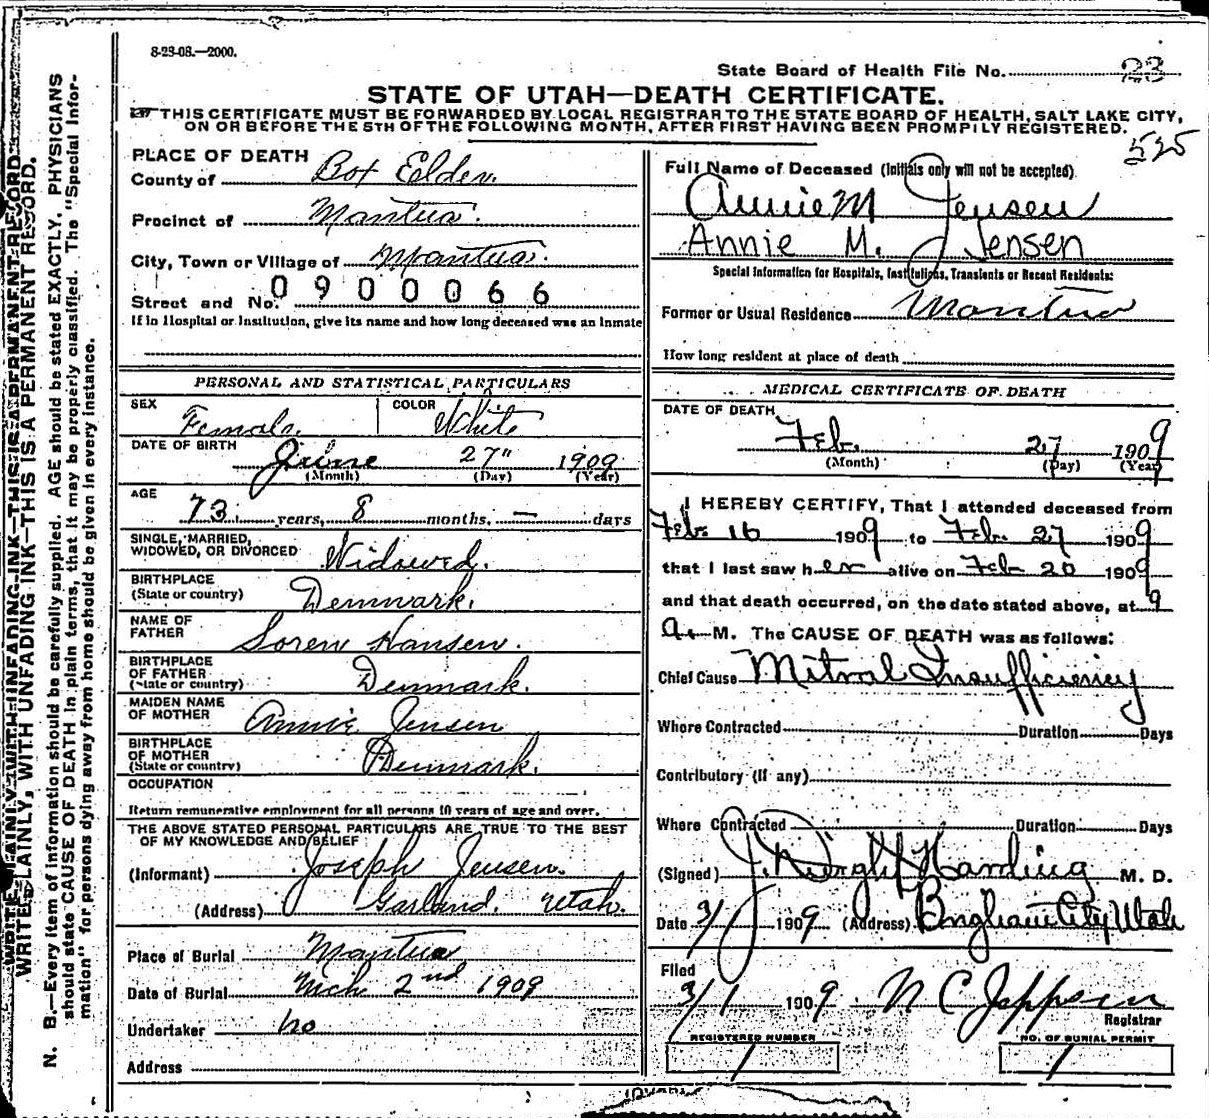 8-23-08.—2000.
State Board of Health File No. 23
STATE OF UTAH—DEATH CERTIFICATE.
THIS CERTIFICATE MUST BE FORWARDED BY LOCAL REGISTRAR TO THE STATE BOARD OF HEALTH, SALT LAKE CITY,
ON OR BEFORE THE 5TH OF THE FOLLOWING MONTH, AFTER FIRST HAVING BEEN PROMPILY REGISTERED.
525
WRITE PLAINLY, WITH UNFADING INK—THIS IS A PERMANENT RECORD.
N. B.—Every item of information should be carefully supplied. AGE should be stated EXACTLY. PHYSICIANS
should state CAUSE OF DEATH in plain terms, that it may be properly classified. The "Special Infor-
mation" for persons dying away from home should be given in every instance.
PLACE OF DEATH
County of Box Elder.
Precinct of Mantua.
City, Town or Village of Mantua.
Street and No. 0900066
If in Hospital or Institution, give its name and how long deceased was an inmate
PERSONAL AND STATISTICAL PARTICULARS
SEX Female. COLOR White
DATE OF BIRTH June 27" 1909
(Month) (Day) (Year)
AGE
73 years, 8 months, — days
SINGLE, MARRIED,
WIDOWED, OR DIVORCED Widowed.
BIRTHPLACE
(State or country) Denmark.
NAME OF
FATHER Soren Hansen.
BIRTHPLACE
OF FATHER
(State or country) Denmark.
MAIDEN NAME
OF MOTHER Annie Jensen
BIRTHPLACE
OF MOTHER
(State or country) Denmark.
OCCUPATION
Return remunerative employment for all persons 10 years of age and over.
THE ABOVE STATED PERSONAL PARTICULARS ARE TRUE TO THE BEST
OF MY KNOWLEDGE AND BELIEF
(Informant) Joseph Jensen.
(Address) Garland. Utah.
Place of Burial Mantua
Date of Burial Mch 2nd 1909
Undertaker no
Address
Full Name of Deceased (Initials only will not be accepted)
Annie M Jensen
Annie M. Jensen
Special Information for Hospitals, Institutions, Transients or Recent Residents:
Former or Usual Residence Mantua
How long resident at place of death
MEDICAL CERTIFICATE OF DEATH
DATE OF DEATH
Feb. 27 1909
(Month) (Day) (Year)
I HEREBY CERTIFY, That I attended deceased from
Feb. 16 1909 to Feb. 27 1909
that I last saw her alive on Feb 20 1909
and that death occurred, on the date stated above, at 9
a. M. The CAUSE OF DEATH was as follows:
Chief Cause Mitral Insufficiency
Where Contracted Duration Days
Contributory (If any)
Where Contracted Duration Days
(Signed) J. Dwight Harding M. D.
Date 3/1 1909 (Address) Brigham City Utah
Filed
3/1 1909. N C Jeppsen
Registrar
REGISTERED NUMBER NO. OF BURIAL PERMIT
1 1